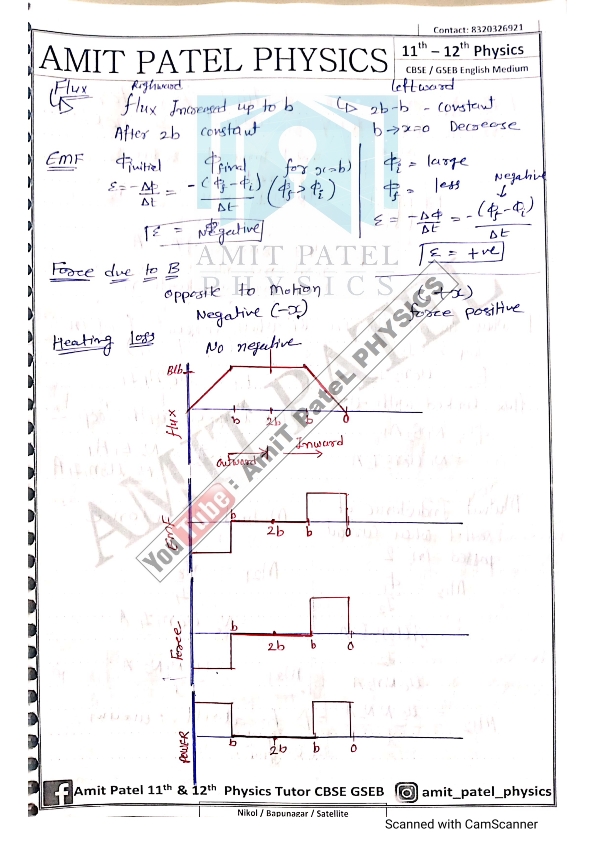 Contact: 8320326921
AMIT PATEL PHYSICS
11th – 12th Physics
CBSE / GSEB English Medium
Flux Rightward
Flux Increased up to b
After 2b constant
Leftward
2b-b - constant
b → x=0 Decrease
EMF Φinitial Φfinal for x=b)
ε = -ΔΦ/Δt = -(Φf - Φi)/Δt (Φf > Φi)
ε = Negative
Φi = large
Φf = less Negative
ε = -ΔΦ/Δt = -(Φf - Φi)/Δt
ε = +ve
AMIT PATEL
PHYSICS
Force due to B
opposite to motion
Negative (-x)
(+x)
force positive
Heating loss No negative
Blb
flux
b 2b b 0
outward Inward
EMF
b 2b b 0
Force
b 2b b 0
POWER
b 2b b 0
AMIT PATEL
YouTube : AmiT PateL PHYSICS
Amit Patel 11th & 12th Physics Tutor CBSE GSEB amit_patel_physics
Nikol / Bapunagar / Satellite
Scanned with CamScanner